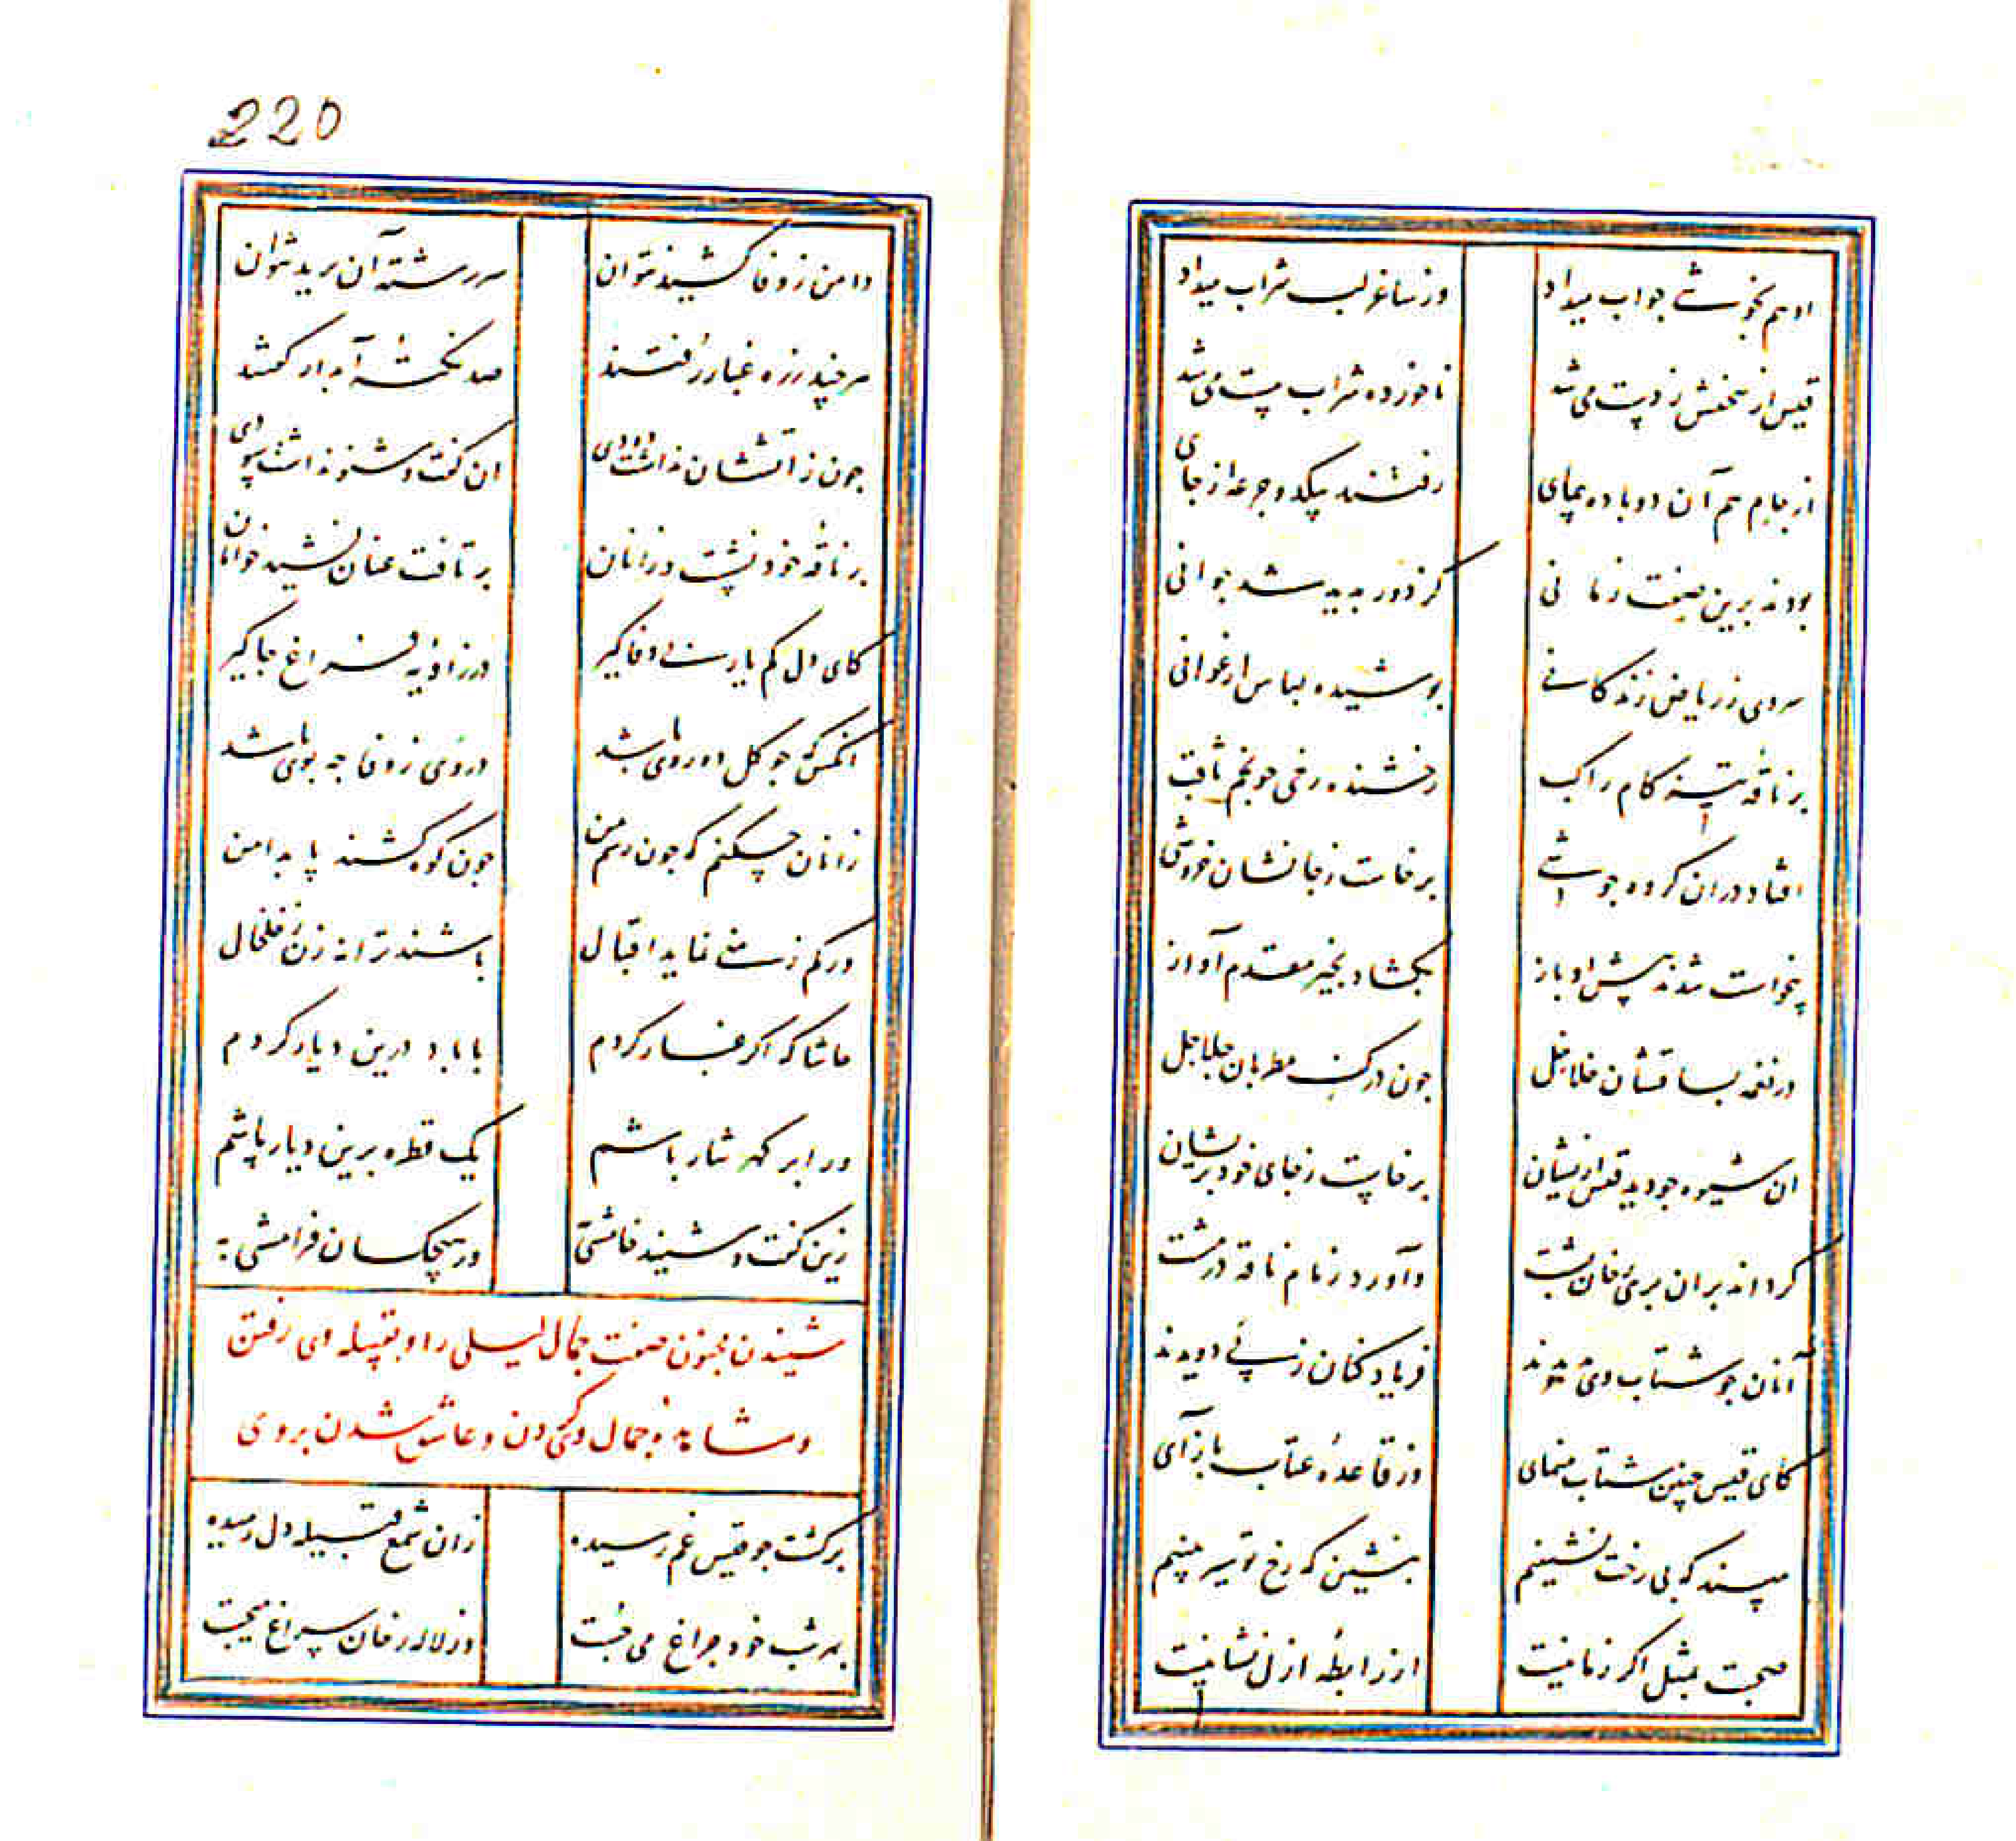 او هم بخوشی جواب میداد وز ساغر لب شراب میداد
قیس از سخنش ز دست می شد ناخورده شراب مست می شد
از جام هم آن دو باده پیمای رفتند بیکدو جرعه از جای
بودند برین صفت زمانی کز دور پدید شد جوانی
سروی ز ریاض زندگانی پوشیده لباس ارغوانی
بر ناقه کام راکب رخشنده رخی چو نجم ثاقب
افتاد در ان گروه جوشی برخاست ز جانشان خروشی
شدند پیش او باز بگشاد بخیر مقدم آواز
در نغمه بساقشان خلاخل چون در کف مطربان جلاجل
ان شیوه چو دید قیس ازیشان برخاست ز جای خود پریشان
گرداند بر ان پری رخان پشت و آورد زمام ناقه در مشت
آنان چو شتاب وی بدیدند فریاد کنان ز پی دویدند
کای قیس چنین شتاب منمای وز قاعدهٔ عتاب باز آی
مپسند که بی رخت نشینیم بنشین که رخ تو سیر بینیم
صحبت بمثل اگر زمانیست از رابطهٔ ازل نشانیست
220
دامن ز وفا کشید نتوان سررشتهٔ آن برید نتوان
هر چند ز ره غبار رفتند صد نکتهٔ آبدار گفتند
چون ز آتششان نداشت دودی ان گفت و شنو نداشت سودی
بر ناقه خود نشست و زانان برتافت عنان نشید خوانان
کای دل کم یار بی وفا گیر در زاویهٔ فراغ جا گیر
انکس که چو گل دو روی باشد در وی ز وفا چه بوی باشد
زانان چکنم که چون رسم من چون کوه کشند پا بدامن
ور کم ز منی نماید اقبال باشند ترانه زن ز خلخال
حاشا که اگر غبار گردم با باد درین دیار گردم
ور ابر گهر نثار باشم یک قطره برین دیار پاشم
زین گفت و شنید خامشی به وز هیچکسان فرامشی به
شنیدن مجنون صفت جمال لیلی را و بقبیله وی رفتن
و مشاهدهٔ جمال وی کردن و عاشق شدن بر وی
برگشت چو قیس غم رسیده زان شمع قبیله دل رمیده
بهر شب خود چراغ می جست وز لاله رخان سراغ میجست